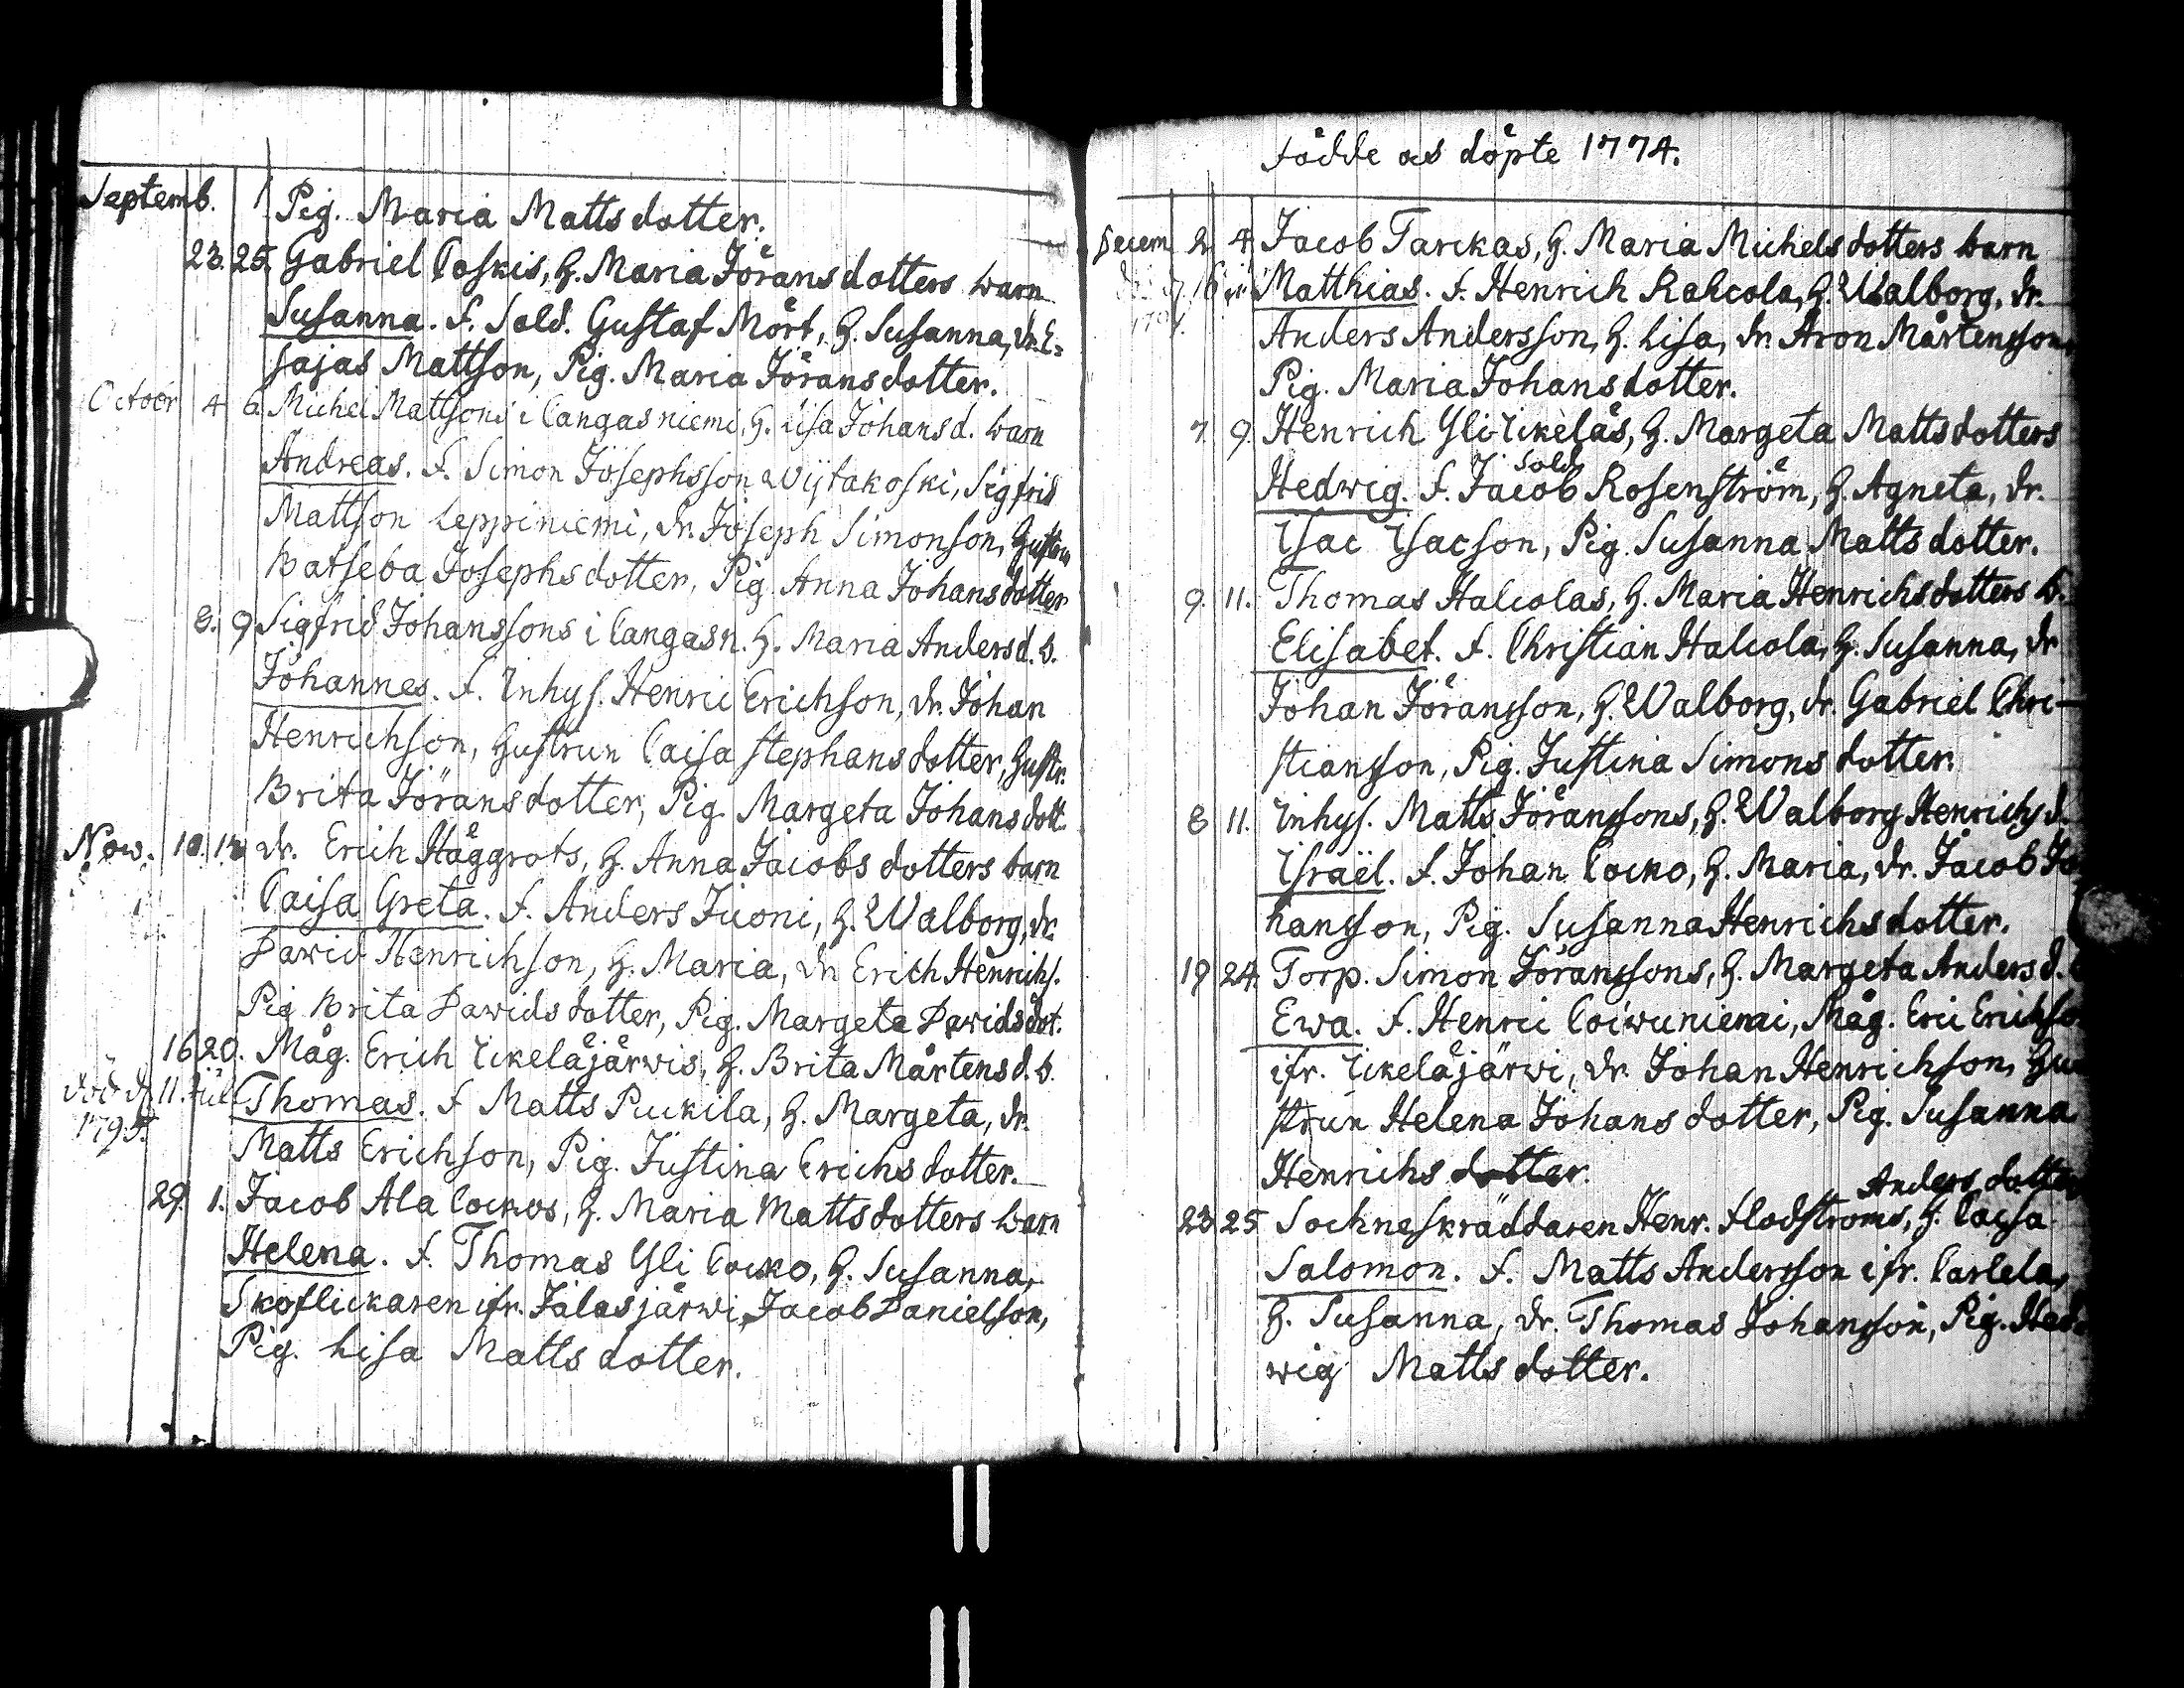 Septemb. Pig. Maria Mattsdotter.
23. 25. Gabriel Coskis, H. Maria Jöransdotters barn
Susanna. F. Sold. Gustaf Mört, H. Susanna, dr. E=
sajas Mattson, Pig. Maria Jöransdotter.
Octobr 4 6 Michel Mattsons i Cangasniemi, H. Lisa Johansd. barn
Andreas. F. Simon Josephsson Wijtakoski, Sigfrid
Mattson Leppiniemi, dr. Joseph Simonson, Gustru
Batseba Josephsdotter, Pig. Anna Johansdotter
8. 9 Sigfrid Johanssons i Cangasn. H. Maria Andersd. b.
Johannes. F. Inhys. Henric Erichson, dr. Johan
Henrichson, Gustrun Caisa Stephansdotter, Gustr.
Brita Jöransdotter, Pig. Margeta Johansdott.
Now. 10. dr. Erich Häggrots, H. Anna Jacobsdotters barn
Caisa Greta. F. Anders Juoni, H. Walborg, dr.
Dawid Henrichson, H. Maria, dr. Erich Henrichs.
Pig Brita Dawidsdotter, Pig. Margeta Dawidsdot.
16 20. Måg. Erich Ickeläjärwis, H. Brita Mårtensd. b.
död d. 11. Jul. Thomas. F Matts Puckila, H. Margeta, dr.
1795. Matts Erichson, Pig. Justina Erichsdotter.
29. 1. Jacob Ala Cockos, H. Maria Mattsdotters barn
Helena. F. Thomas Yli Cocko, H. Susanna,
Skoflickaren ifr. Jalasjärwi, Jacob Danielson,
Pig. Lisa Mattsdotter.
Födde och döpte 1774.
Decem 2. 4. Jacob Tarckas, H. Maria Michelsdotters barn
Matthias. F. Henrich Rahcola, H. Walborg, dr.
Anders Andersson, H. Lisa, dr. Aron Mårtensson,
Pig. Maria Johansdotter.
7. 9. Henrich Yli Ickeläs, H. Margeta Mattsdotters
Sold
Hedwig. F. Jacob Rosenström, H. Agneta, dr.
Isac Isacson, Pig. Susanna Mattsdotter.
9. 11. Thomas Halcolas, H. Maria Henrichsdotters b.
Elisabet. F. Christian Halcola, H. Susanna, dr
Johan Jöransson, H. Walborg, dr. Gabriel Chri-
stiansson, Pig. Justina Simonsdotter.
8 11. Inhys. Matts Jöranssons, H. Walborg Henrichsd.
Israël. F. Johan Cocko, H. Maria, dr. Jacob Jo
hansson, Pig. Susanna Henrichsdotter.
19 24. Torp. Simon Jöranssons, H. Margeta Andersd.
Ewa. F. Henric Coiwuniemi, Måg. Eric Erichso
ifr. Ickeläjärwi, dr. Johan Henrichson, Gu
strun Helena Johansdotter, Pig. Susanna
Henrichsdotter.
Andersdotter
23 25 Sockneskräddaren Henr. Flodströms, H. Caisa
Salomon. F. Matts Andersson ifr. Carlela,
H. Susanna, dr. Thomas Johansson, Pig. Hed
wig Mattsdotter.